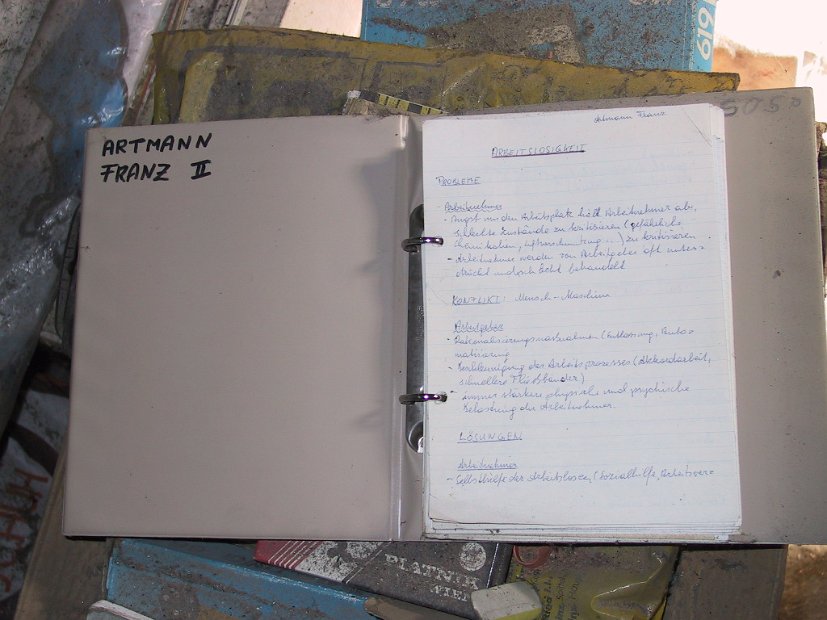 619
5050
ARTMANN
FRANZ II
Artmann Franz
ARBEITSLOSIGKEIT
PROBLEME
Arbeitnehmer
- Angst um den Arbeitsplatz hält Arbeitnehmer ab,
schlechte Zustände zu kritisieren (gefährliche
Chemikalien, Luftverschmutzung ...) zu kritisieren
- Arbeitnehmer werden von Arbeitgeber oft unter-
drückt und schlecht behandelt
KONFLIKT: Mensch - Maschine
Arbeitgeber
- Rationalisierungsmaßnahmen (Entlassung, Auto-
matisierung
- Beschleunigung des Arbeitsprozesses (Akkordarbeit,
schnellere Fließbänder)
- immer stärkere physische und psychische
Belastung der Arbeitnehmer.
LÖSUNGEN
Arbeitnehmer
- Selbsthilfe der Arbeitslosen (Sozialhilfe, Arbeitsver-
PIATNIK
WIEN